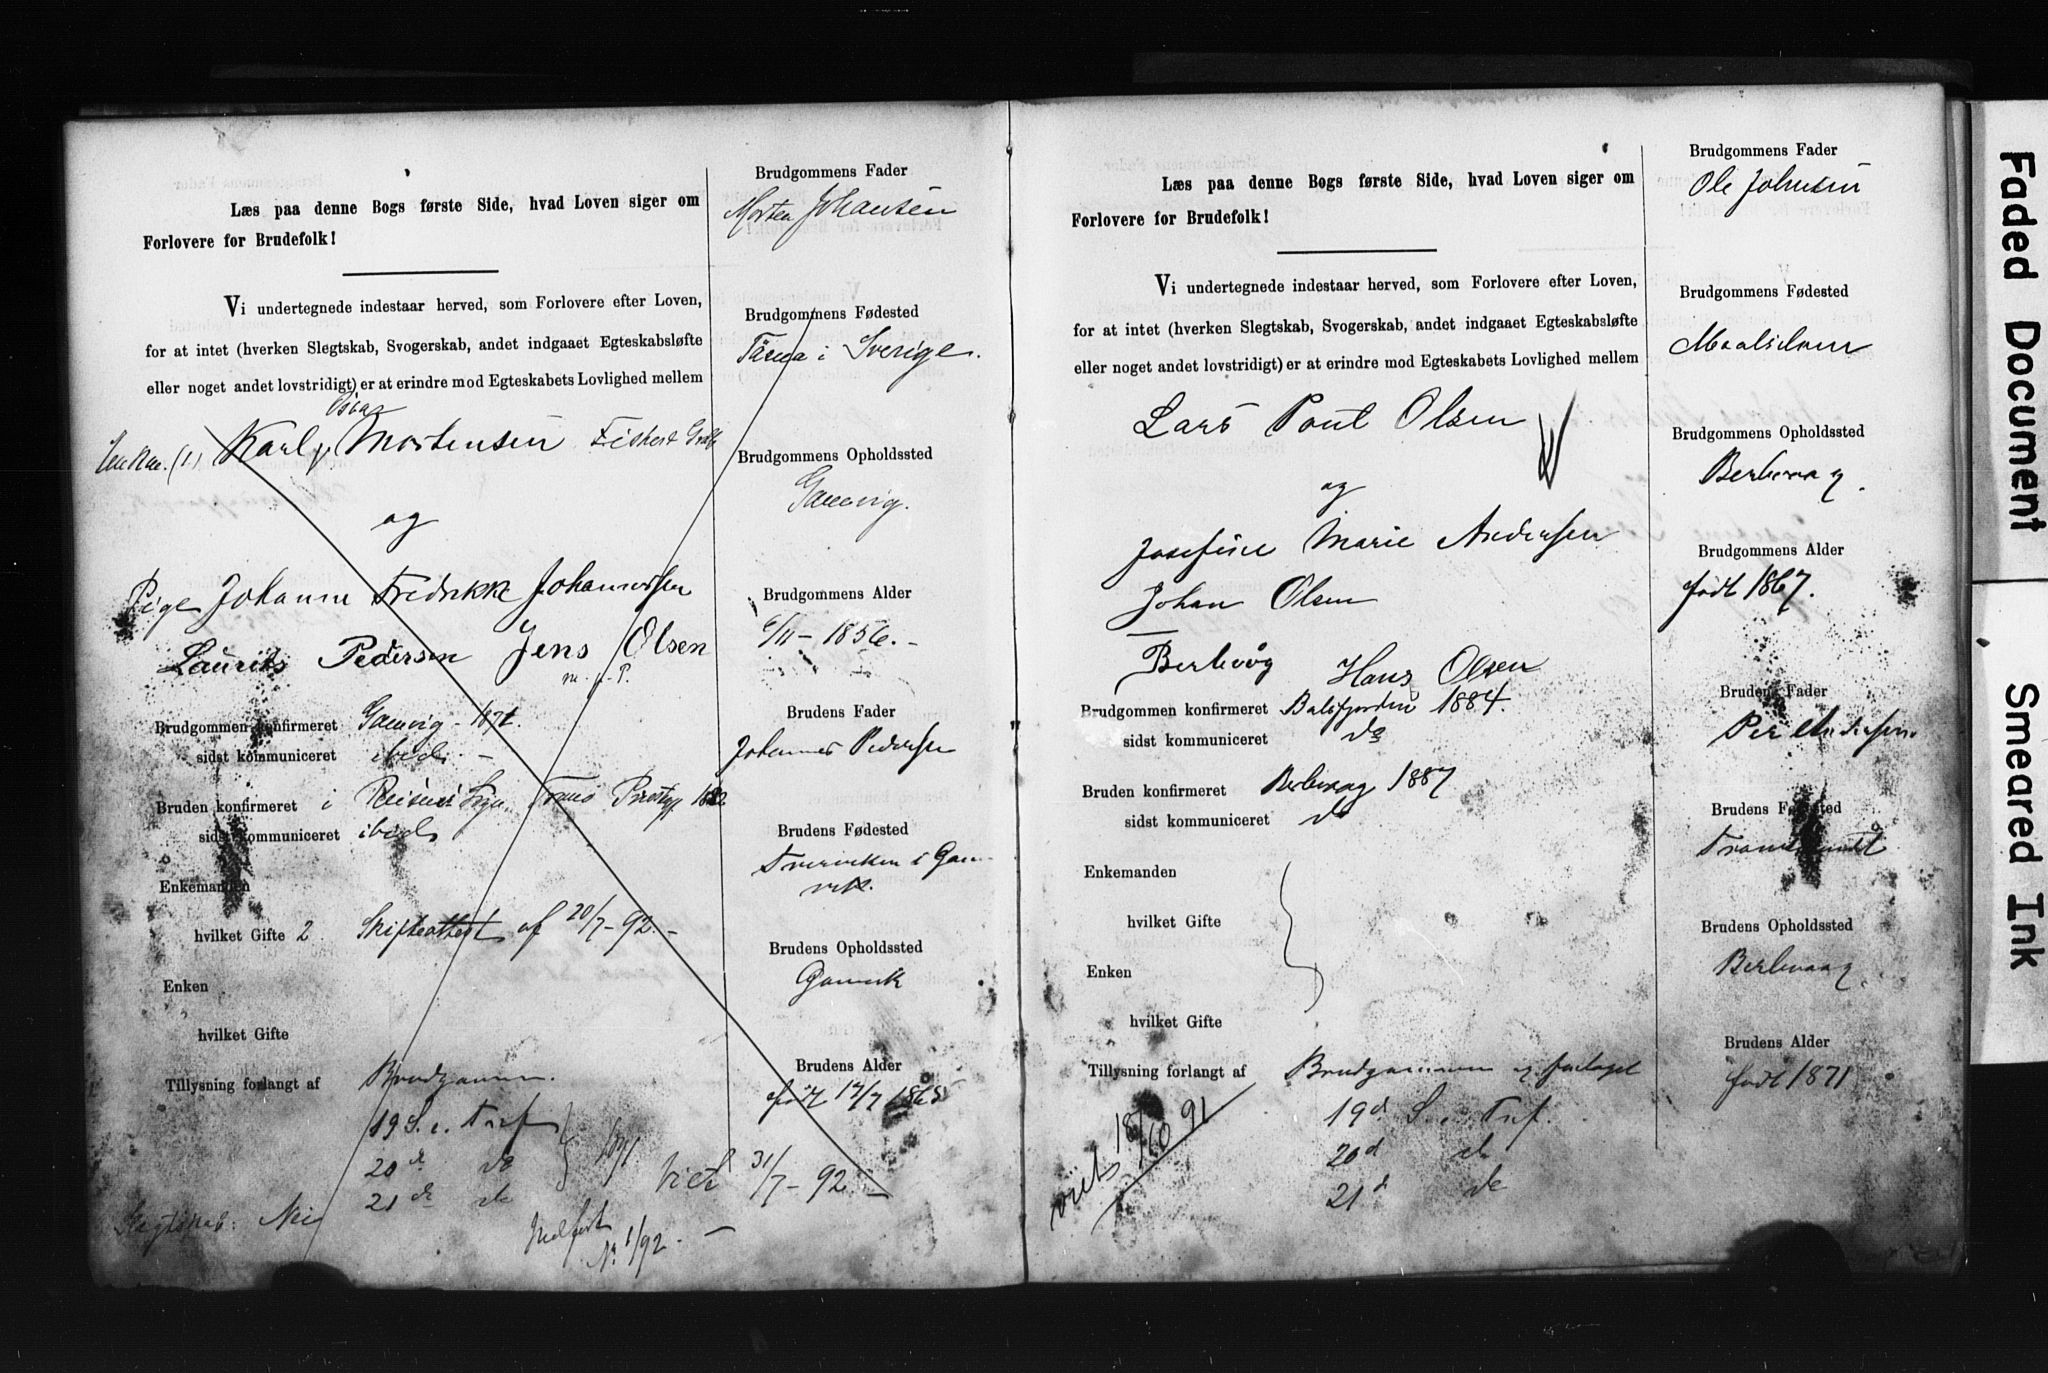 Læs paa denne Bogs første Side, hvad Loven siger om
Forlovere for Brudefolk!
Vi undertegnede indestaar herved, som Forlovere efter Loven,
for at intet (hverken Slegtskab, Svogerskab, andet indgaaet Egteskabsløfte
eller noget andet lovstridigt) er at erindre mod Egteskabets Lovlighed mellem
Karl Mortensen Fisker
og
Pige Johanne Fredrikke Johannessen
Laurits Pedersen Jens Olsen
m. p. P.
Brudgommen konfirmeret Gamvig
sidst kommuniceret ibid
Bruden konfirmeret i
sidst kommuniceret ibid
Enkemanden
hvilket Gifte 2 Skifteattest af 20/7-92.-
Enken
hvilket Gifte
Tillysning forlangt af Brudgommen.
19 S. e. Tref
20 de do
21 de do
Viet 31/7-92.-
Slegtskab: Nei
Indført
No 1/92.-
Brudgommens Fader
Morten Johansen
Brudgommens Fødested
Tärna i Sverige.
Brudgommens Opholdssted
Gamvig.
Brudgommens Alder
6/11-1856.-
Brudens Fader
Johannes Pedersen
Brudens Fødested
Brudens Opholdssted
Gamvik
Brudens Alder
født 17/7 1865
Læs paa denne Bogs første Side, hvad Loven siger om
Forlovere for Brudefolk!
Vi undertegnede indestaar herved, som Forlovere efter Loven,
for at intet (hverken Slegtskab, Svogerskab, andet indgaaet Egteskabsløfte
eller noget andet lovstridigt) er at erindre mod Egteskabets Lovlighed mellem
Lars Paul Olsen
og
Josefine Marie Andersen
Johan Olsen
Berlevåg Hans Olsen
Brudgommen konfirmeret Balsfjorden 1884.
sidst kommuniceret do
Bruden konfirmeret Berlevaag 1887
sidst kommuniceret do
Enkemanden
hvilket Gifte
Enken
hvilket Gifte
Tillysning forlangt af Brudgommen og foretaget
19d S. e. Tref.
20d do
21d do
viets 18/10 91
Brudgommens Fader
Ole Johnsen
Brudgommens Fødested
Maalselven
Brudgommens Opholdssted
Berlevaag.
Brudgommens Alder
født 1867.
Brudens Fader
Peder Andersen.
Brudens Fødested
Brudens Opholdssted
Berlevaag.
Brudens Alder
født 1871
Faded Document
Smeared Ink